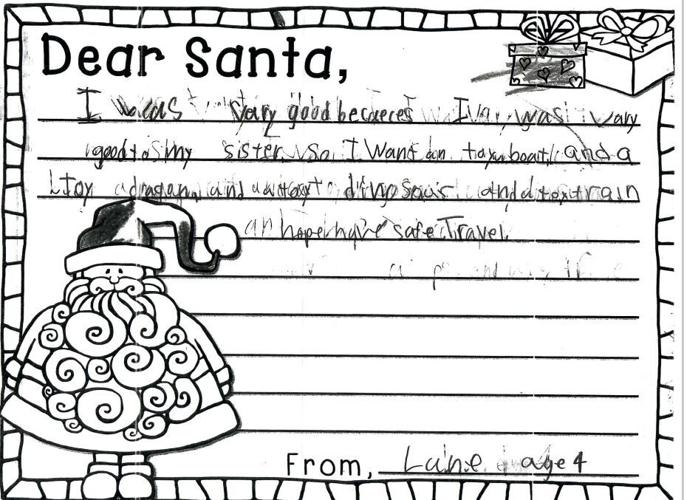 Dear Santa,
I was vary good becaeces I was vary
good to my sister so I want an toy boat and a
toy dragan and a toy dinosaus and a toy train
an hope have safe Travel
From, Lune age 4